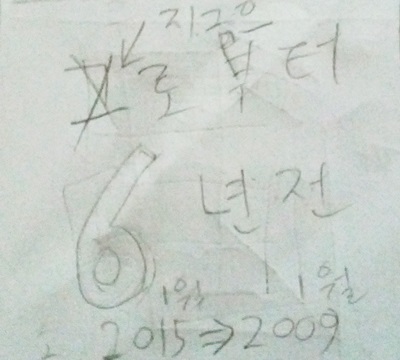 지금은
로부터
6년 전
1월 1월
2015⇒2009